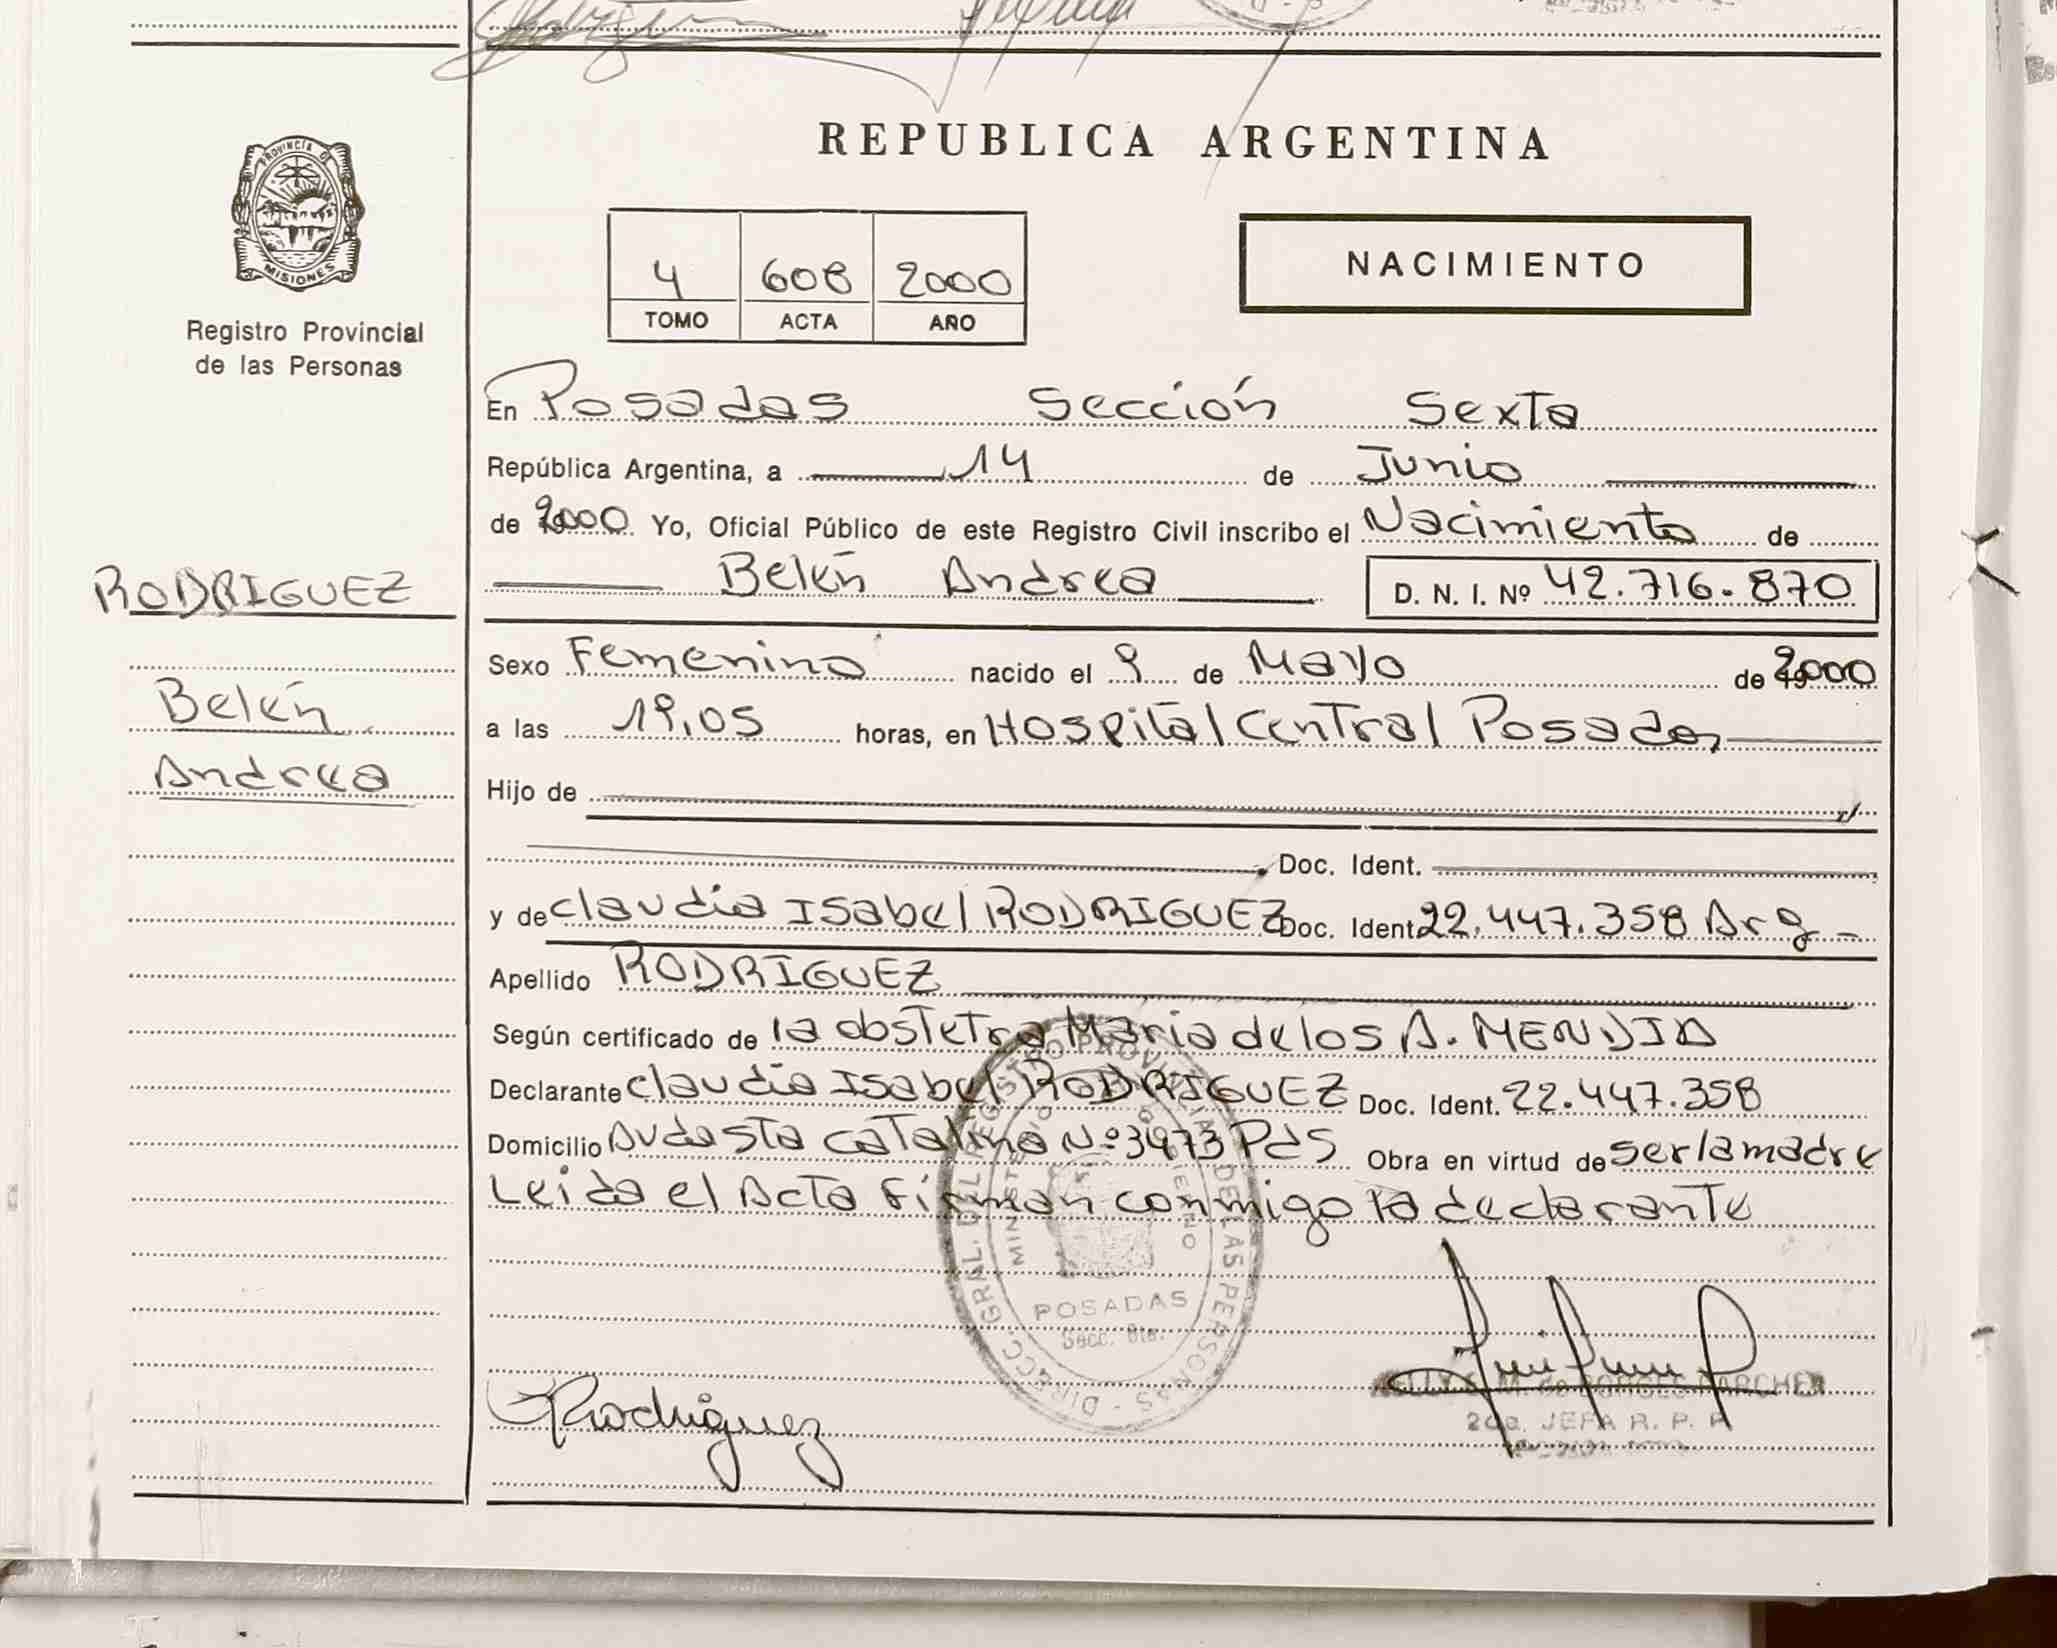 REPUBLICA ARGENTINA
PROVINCIA DE
MISIONES
Registro Provincial
de las Personas
4 608 2000
TOMO ACTA AÑO
NACIMIENTO
En Posadas Sección Sexta
República Argentina, a 14 de Junio
de 2000 Yo, Oficial Público de este Registro Civil inscribo el Nacimiento de
Belén Andrea D. N. I. Nº 42.716.870
RODRIGUEZ
Belén
Andrea
Sexo Femenino nacido el 9 de Mayo de 2000
a las 19,05 horas, en Hospital Central Posadas
Hijo de
Doc. Ident.
y de Claudia Isabel RODRIGUEZ Doc. Ident 22.447.358 Arg
Apellido RODRIGUEZ
Según certificado de la obstetra Maria de los A. MENDIA
Declarante Claudia Isabel RODRIGUEZ Doc. Ident. 22.447.358
Domicilio Avda Sta Catalina Nº 3473 Pds Obra en virtud de ser la madre
Leida el Acta firman conmigo la declarante
DIRECC. GRAL. DEL REGISTRO PROVINCIAL DE LAS PERSONAS
MINISTERIO GOBIERNO
POSADAS
Secc. 6ta.
Rodriguez
M. de BORGES
2da. JEFA R. P. P.